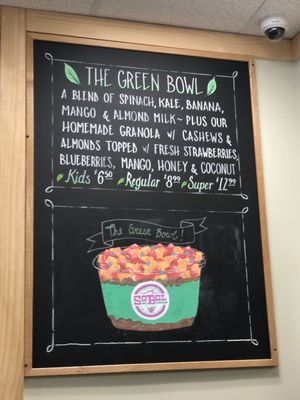 THE GREEN BOWL
A BLEND OF SPINACH, KALE, BANANA,
MANGO & ALMOND MILK ~ PLUS OUR
HOMEMADE GRANOLA W/ CASHEWS &
ALMONDS TOPPED W/ FRESH STRAWBERRIES,
BLUEBERRIES, MANGO, HONEY & COCONUT
Kids $6.50 Regular $8.99 Super $12.99
The Green Bowl!
SOBOL